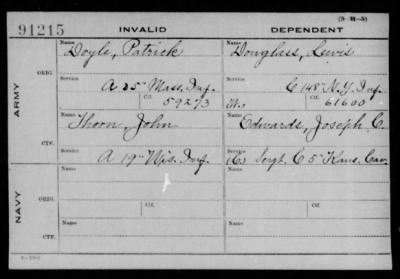 (3-14-3)
91215 INVALID DEPENDENT
Name Name
Doyle, Patrick Douglass, Lewis
ARMY
ORIG.
Service Service
A 25" Mass. Inf. C 148" N.Y. Inf.
Ctf. 59273 W. Ctf. 61600
Name Name
Thorn, John Edwards, Joseph C.
CTF.
Service Service
A 19" Wis. Inf. (C.) Sergt. C 5" Kans. Cav.
NAVY
Name Name
ORIG.
Ctf. Ctf.
Name Name
CTF.